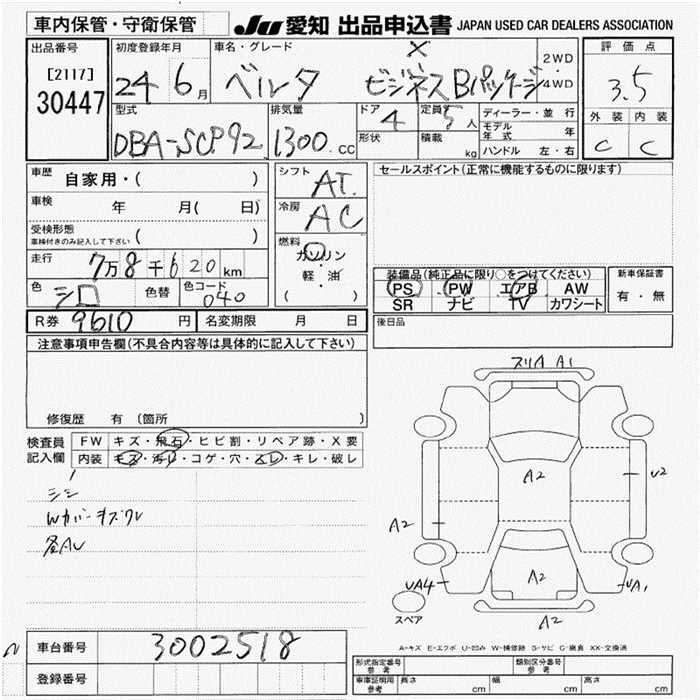 車内保管・守衛保管
JU 愛知 出品申込書 JAPAN USED CAR DEALERS ASSOCIATION
出品番号
[2117]
30447
初度登録年月
24 6月
車名・グレード
ベルタ
X
ビジネスBパッケージ
2WD
4WD
評価点
3.5
外装 内装
C C
型式
DBA-SCP92
排気量
1300.CC
ドア
4
形状
定員
5人
積載
kg
ディーラー・並行
モデル年式 年
ハンドル 左・右
車歴
自家用・( )
車検
年 月( 日)
受検形態
車検付きのみ記入して下さい ( )
走行
7万8千620km
色
シロ
色替
色コード
040
シフト
AT
冷房
AC
燃料
ガソリン
軽・油
( )
セールスポイント(正常に機能するものに限ります)
装備品(純正品に限り○をつけてください)
PS PW エアB AW
SR ナビ TV カワシート
新車保証書
有・無
後日品
R券 9610 円
名変期限 月 日
注意事項申告欄(不具合内容等は具体的に記入して下さい)
修復歴 有 (箇所 )
検査員記入欄
FW キズ・飛石・ヒビ割・リペア跡・X要
内装 キズ・汚レ・コゲ・穴・スレ・キレ・破レ
シミ
Wカバーキズワレ
各AU
スリA A1
A2
U2
A2
A2
UA4
UA1
A2
スペア
車台番号
3002518
登録番号
A-キズ E-エクボ U-凹み W-補修跡 S-サビ C-腐食 XX-交換済
形式指定番号
参考
類別区分番号
参考
車庫証明用
参考
長さ cm
幅 cm
高さ cm